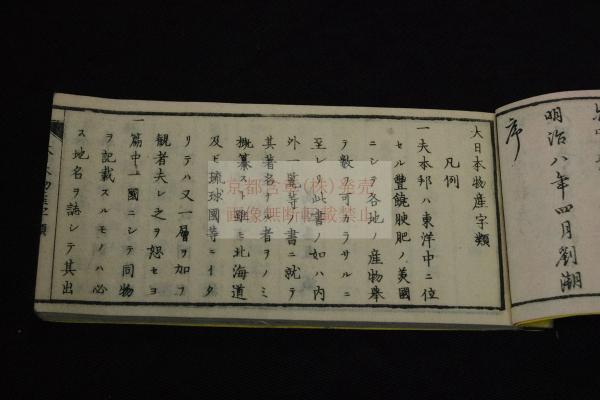 明治八年四月劉潮
序
大日本物産字類
凡例
一夫本邦ハ東洋中ニ位
セル豐饒腴肥ノ美國
ニシテ各地ノ産物舉
テ數フ可カラサルニ
至レリ此書ノ如ハ内
外一覽等ノ書ニ就テ
其著名ナル者ヲノミ
概纂スト雖モ北海道
及ヒ琉球國等ニイタ
リテハ又一層ヲ加フ
觀者夫レ之ヲ恕セヨ
一篇中一國ニシテ同物
ヲ記載スルモノハ必
ス地名ヲ誌シテ其出
京都書店(株)発売
画像無断転載禁止